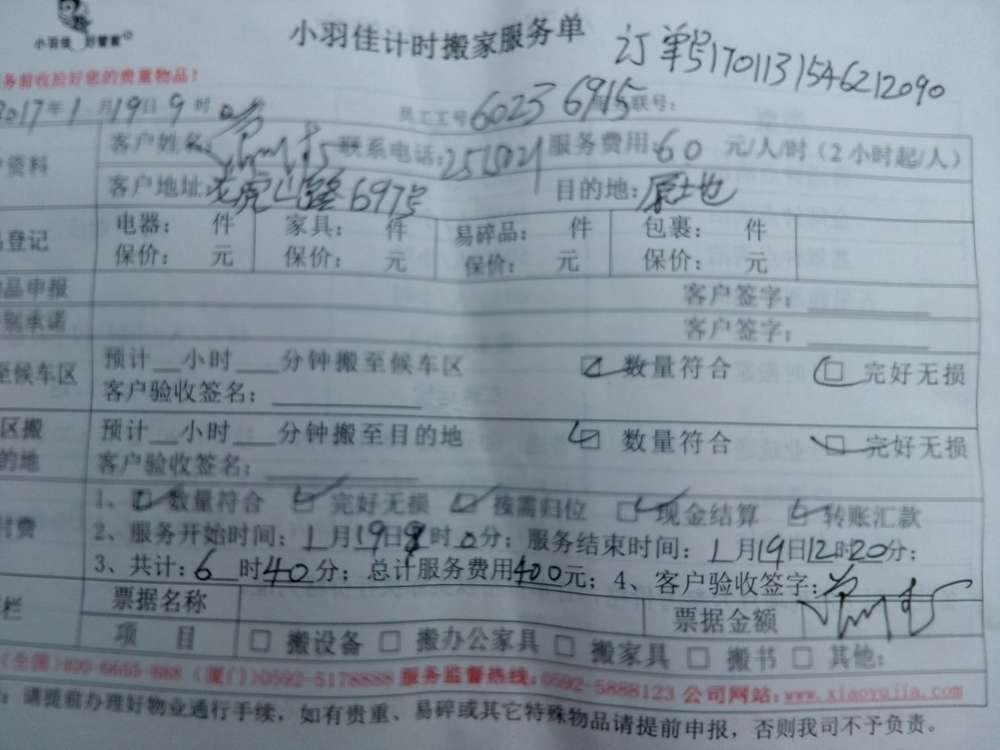 小羽佳 好管家
小羽佳计时搬家服务单
订单号1701131546212090
务前收拾好您的贵重物品！
2017年1月19日9时
员工工号6023 6915 联号：
资料
客户姓名： 联系电话： 服务费用：60 元/人/时（2小时起/人）
客户地址：老虎山路697号 目的地：原地
登记
电器： 件 家具： 件 易碎品： 件 包裹： 件
保价： 元 保价： 元 保价： 元 保价： 元
品申报 客户签字：
别承诺 客户签字：
至候车区
预计__小时___分钟搬至候车区 ☑ 数量符合 ☑ 完好无损
客户验收签名：
区搬
的地
预计__小时___分钟搬至目的地 ☑ 数量符合 ☑ 完好无损
客户验收签名：
付费
1、☑数量符合 ☑ 完好无损 ☑ 按需归位 ☑ 现金结算 ☑ 转账汇款
2、服务开始时间：1月19日9时0分；服务结束时间：1月19日12时20分；
3、共计：6时40分；总计服务费用400元；4、客户验收签字：
栏
票据名称 票据金额
项 目 □ 搬设备 □ 搬办公家具 □ 搬家具 □ 搬书 □ 其他：
（全国）400-6655-888（厦门）0592-5178888 服务监督热线：0592-5888123 公司网站：www.xiaoyujia.com
：请提前办理好物业通行手续，如有贵重、易碎或其它特殊物品请提前申报，否则我司不予负责。